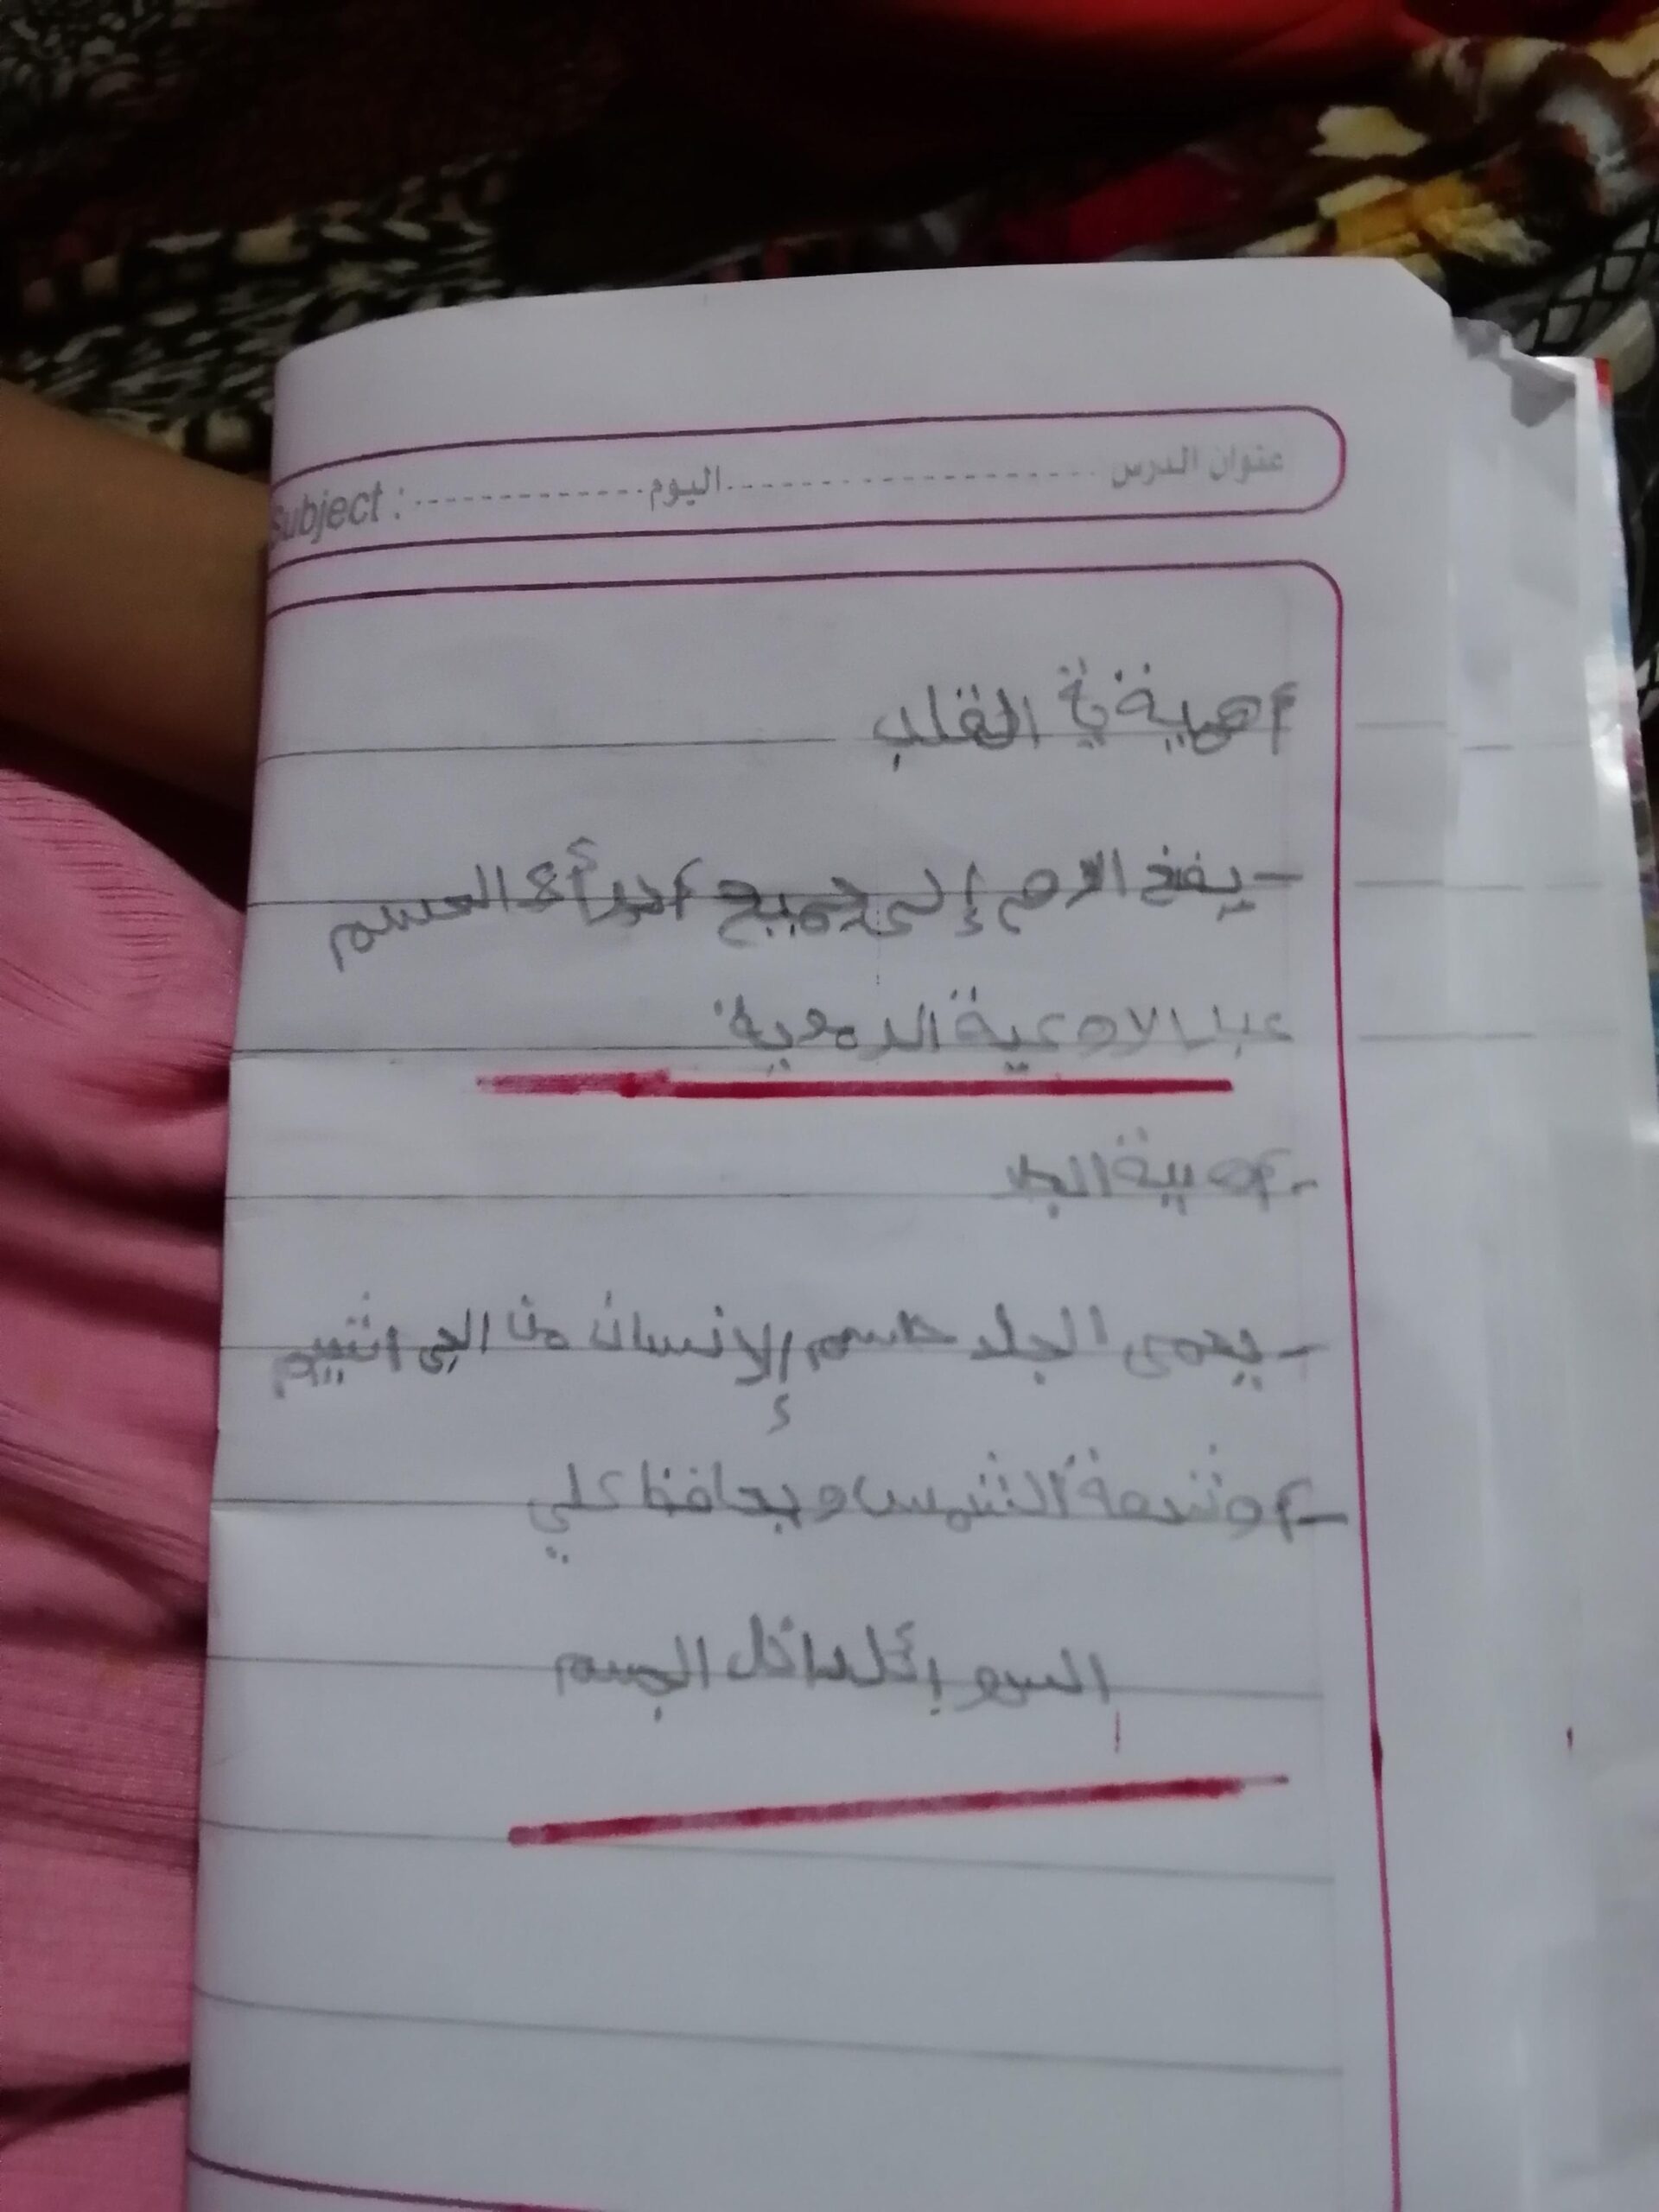 عنوان الدرس ............ اليوم ............ Subject :
أهمية القلب
- يضخ الدم إلى جميع أجزاء الجسم
عبر الاوعية الدموية
- أهمية الجلد
- يحمى الجلد جسم الإنسان من الجراثيم
- أوشعة الشمس ويحافظ علي
السوائل داخل الجسم